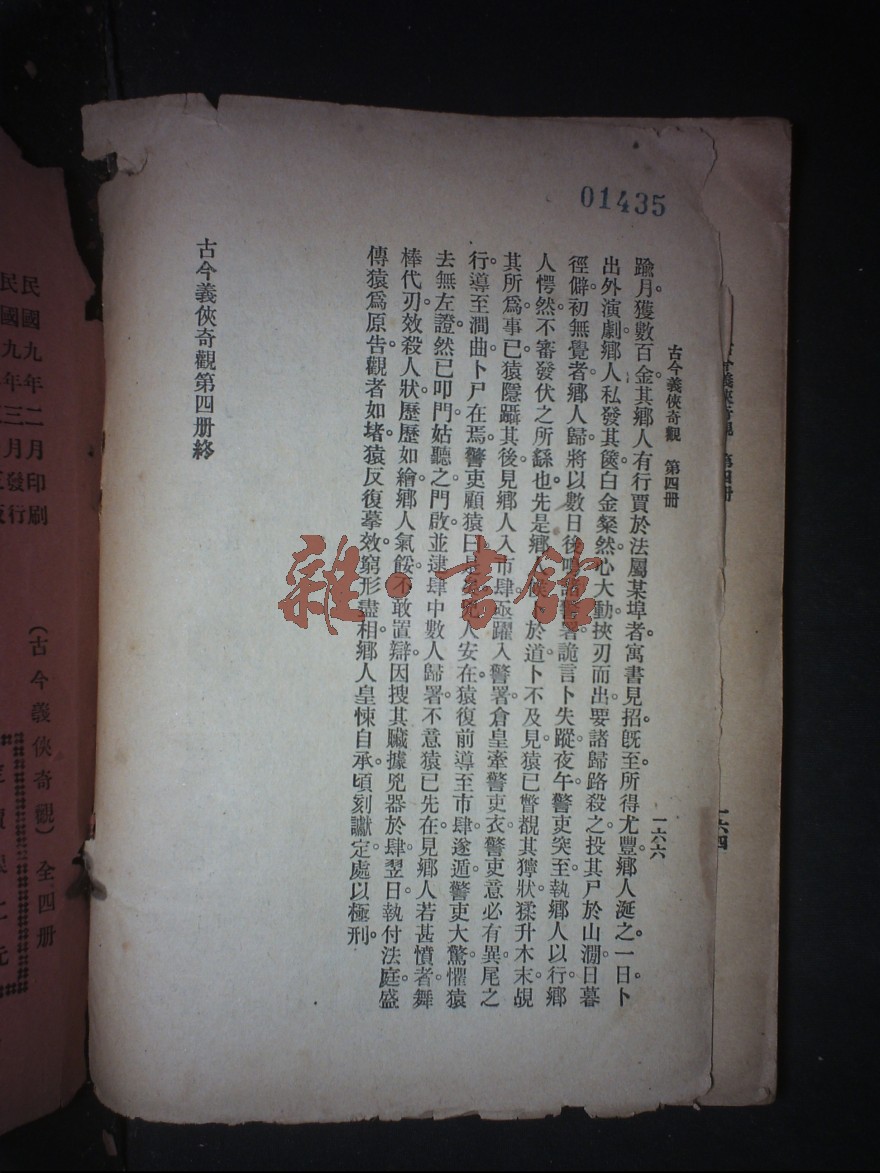 01435
古今義俠奇觀　第四册
一六六
踰月獲數百金其鄉人有行賈於法屬某埠者寓書見招既至所得尤豐鄉人涎之一日卜
出外演劇鄉人私發其篋白金粲然心大動挾刃而出要諸歸路殺之投其尸於山澗日暮
徑僻初無覺者鄉人歸將以數日後鳴諸警署詭言卜失蹤夜午警吏突至執鄉人以行鄉
人愕然不審發伏之所繇也先是鄉人候卜於道卜不及見猿已瞥覩其獰狀猱升木末覘
其所爲事已猿隱躡其後見鄉人入市肆亟躍入警署倉皇牽警吏衣警吏意必有異尾之
行導至澗曲卜尸在焉警吏顧猿曰是矣兇人安在猿復前導至市肆遂遁警吏大驚懼猿
去無左證然已叩門姑聽之門啟並逮肆中數人歸署不意猿已先在見鄉人若甚憤者舞
棒代刃效殺人狀歷歷如繪鄉人氣餒不敢置辯因搜其贜據兇器於肆翌日執付法庭盛
傳猿爲原告觀者如堵猿反復摹效窮形盡相鄉人皇悚自承頃刻讞定處以極刑
古今義俠奇觀第四册終
雜·書館
古今義俠奇觀　第四册
一六四
民國九年二月印刷
民國九年三月發行
(古今義俠奇觀)全四册